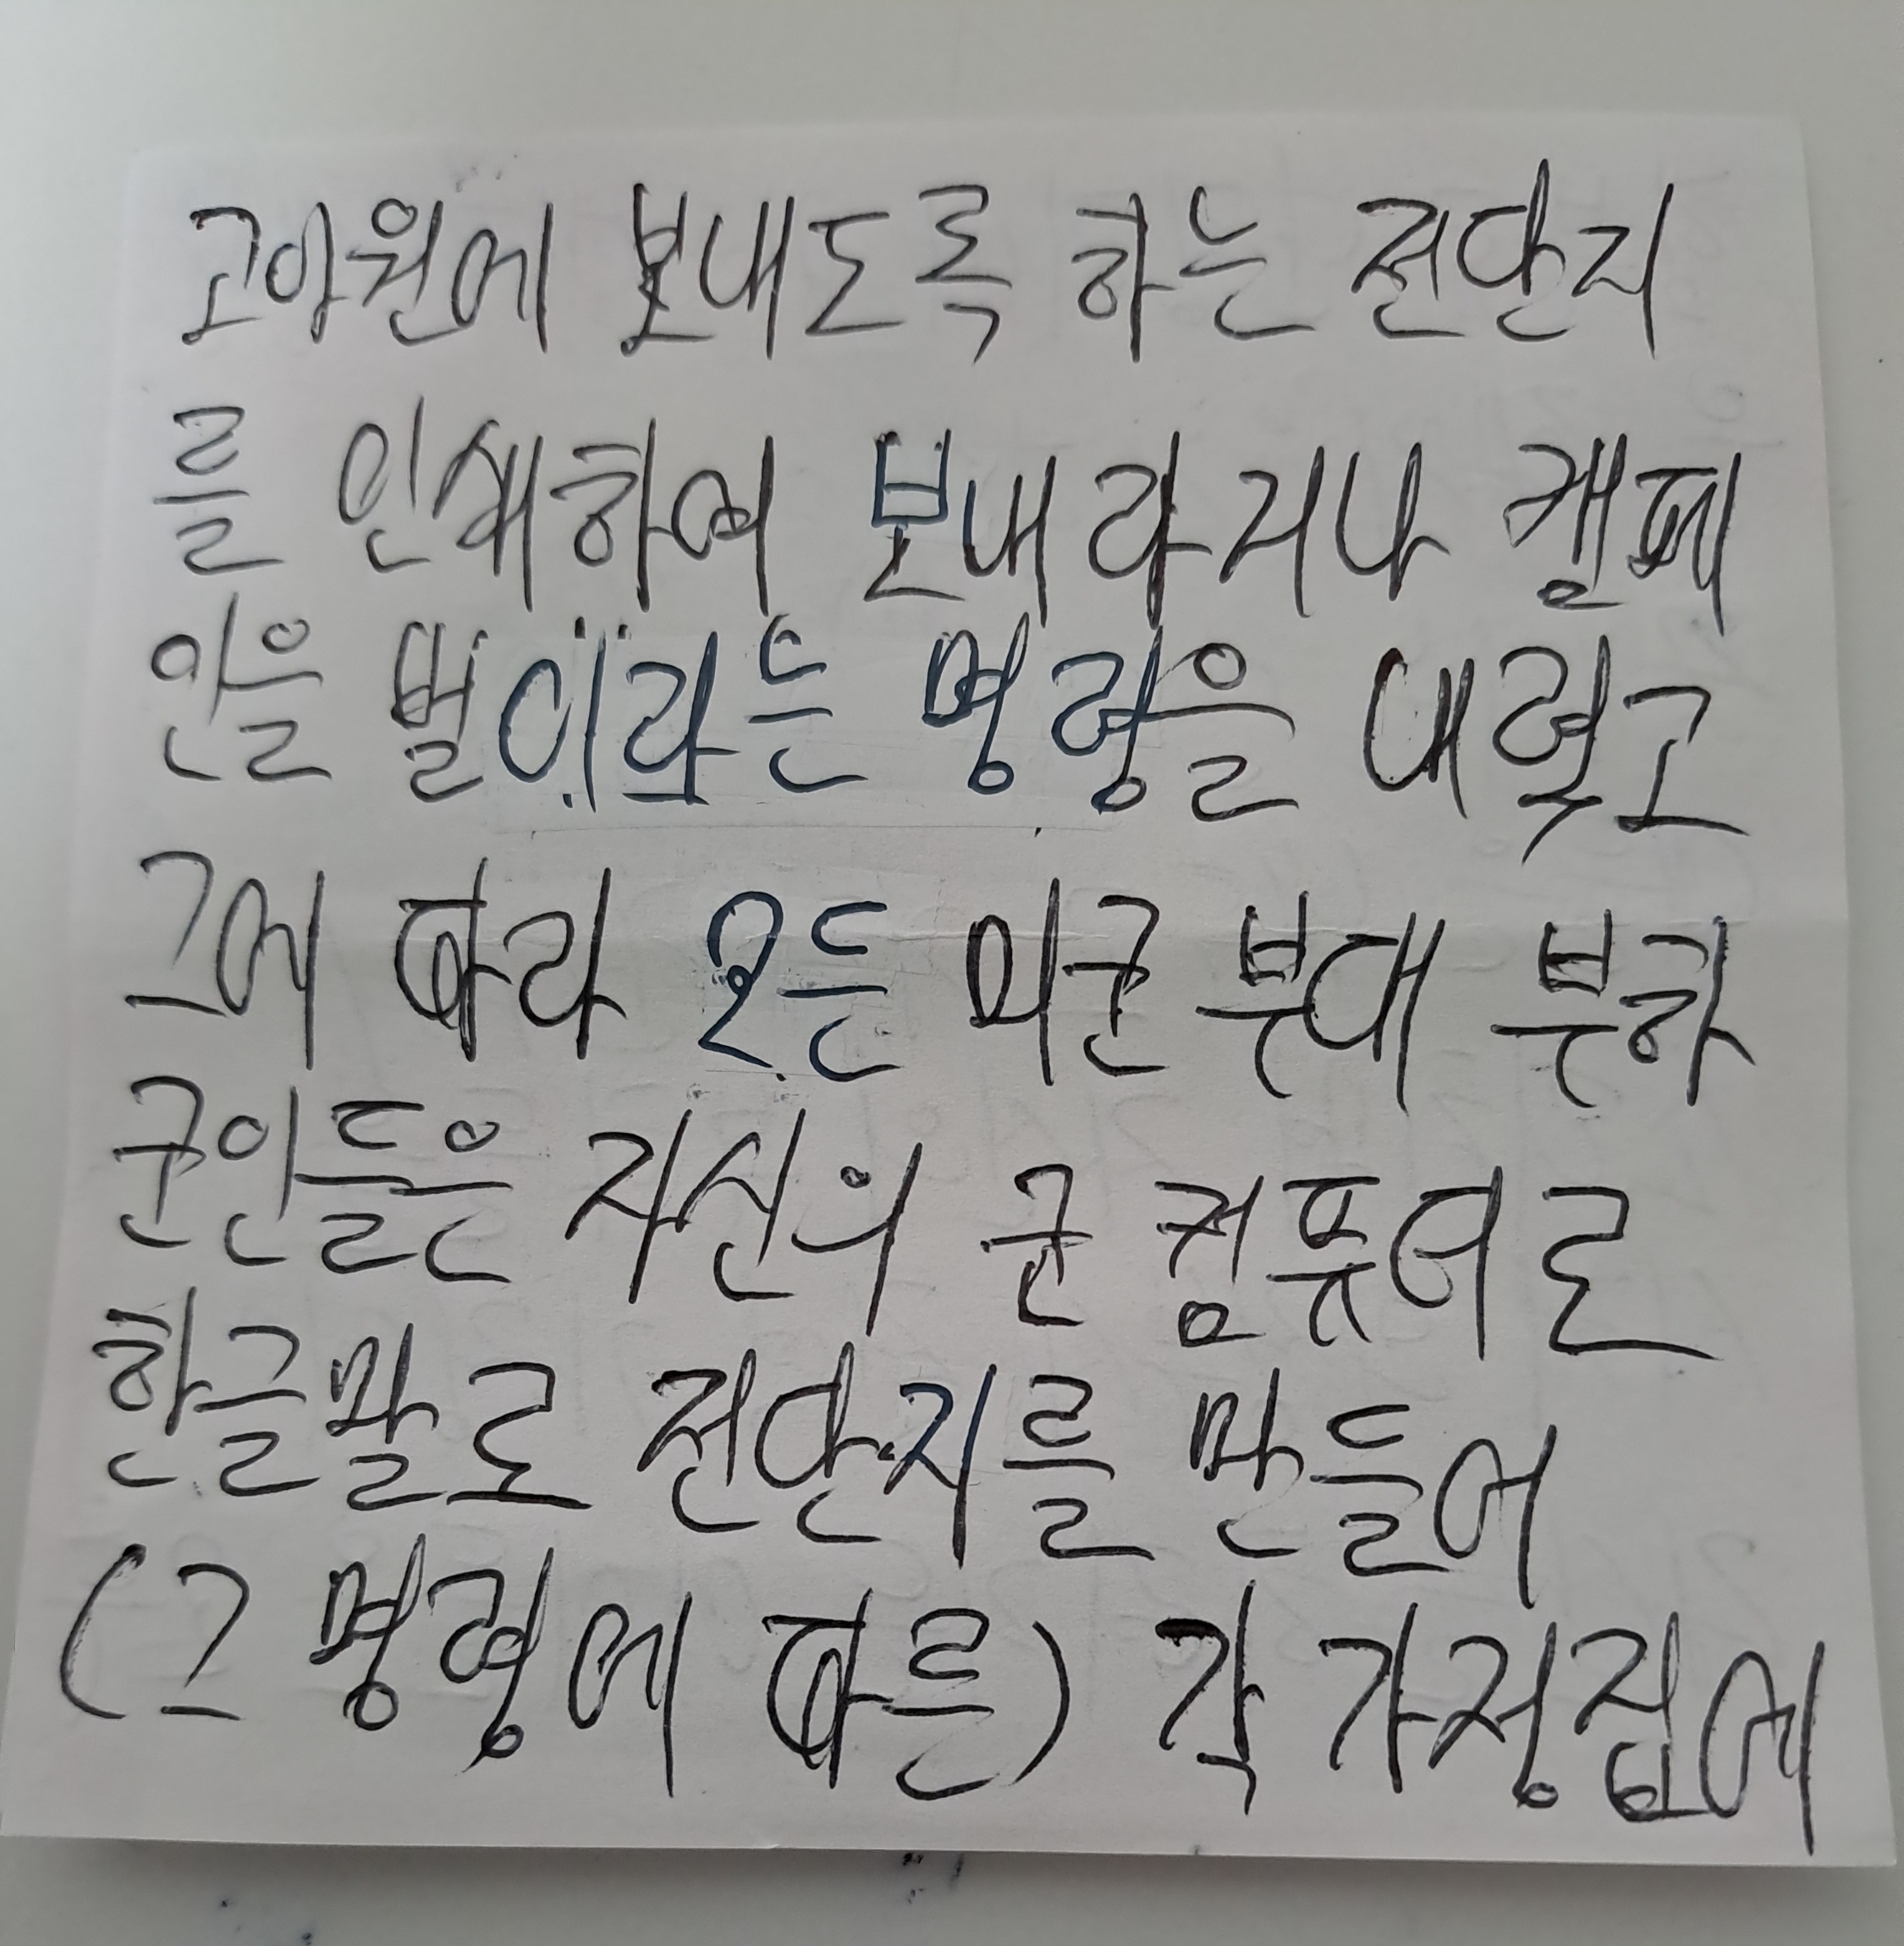 고아원에 보내도록 하는 전단지
를 인쇄하여 보내라거나 캠페
인을 벌이라는 명령을 내렸고
그에 따라 모든 미군 부대 부하
군인들은 자신의 군 컴퓨터로
한글말로 전단지를 만들어
(그 명령에 따른) 각 가정집에